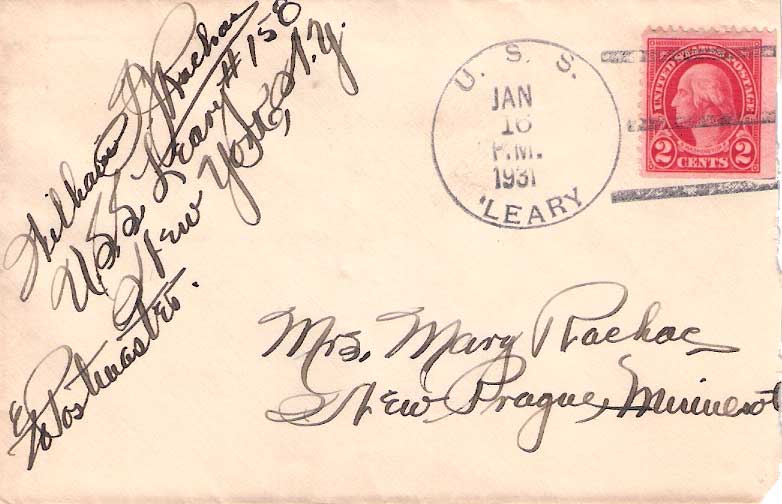 William F. Rachac
U.S.S. Leary #158
New York, N.Y.
c/o Postmaster.
U. S. S.
JAN
16
P.M.
1931
LEARY
UNITED STATES POSTAGE
2 CENTS 2
Mrs. Mary Rachac
New Prague, Minnesot